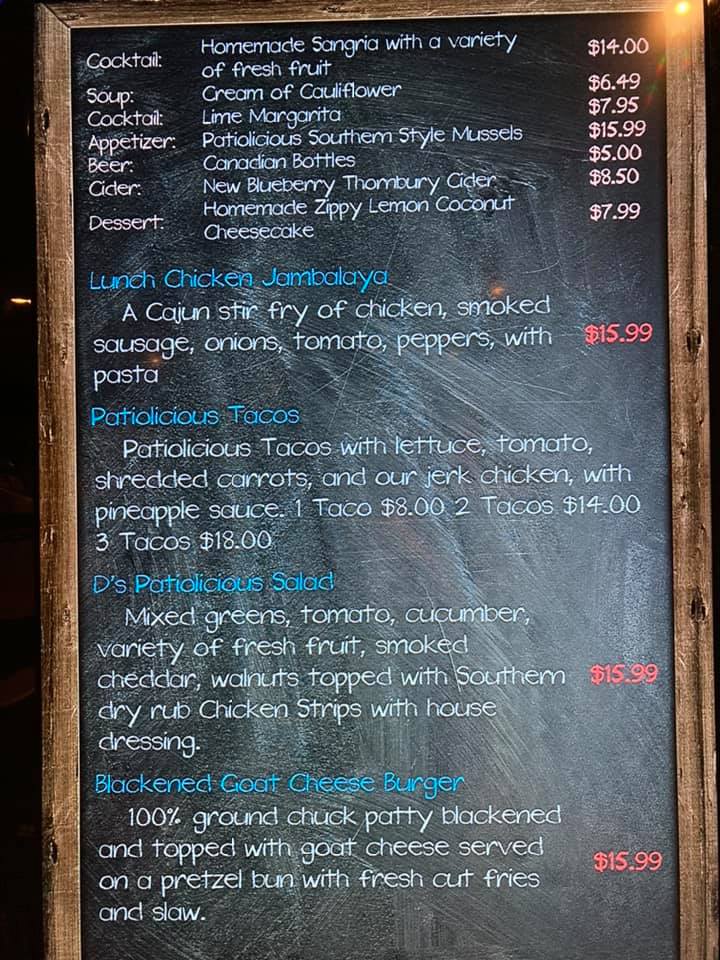 Cocktail: Homemade Sangria with a variety of fresh fruit $14.00
Soup: Cream of Cauliflower $6.49
Cocktail: Lime Margarita $7.95
Appetizer: Patiolicious Southern Style Mussels $15.99
Beer: Canadian Bottles $5.00
Cider: New Blueberry Thornbury Cider $8.50
Dessert: Homemade Zippy Lemon Coconut Cheesecake $7.99
Lunch Chicken Jambalaya
A Cajun stir fry of chicken, smoked
sausage, onions, tomato, peppers, with $15.99
pasta
Patiolicious Tacos
Patiolicious Tacos with lettuce, tomato,
shredded carrots, and our jerk chicken, with
pineapple sauce. 1 Taco $8.00 2 Tacos $14.00
3 Tacos $18.00
D's Patiolicious Salad
Mixed greens, tomato, cucumber,
variety of fresh fruit, smoked
cheddar, walnuts topped with Southern $15.99
dry rub Chicken Strips with house
dressing.
Blackened Goat Cheese Burger
100% ground chuck patty blackened
and topped with goat cheese served $15.99
on a pretzel bun with fresh cut fries
and slaw.